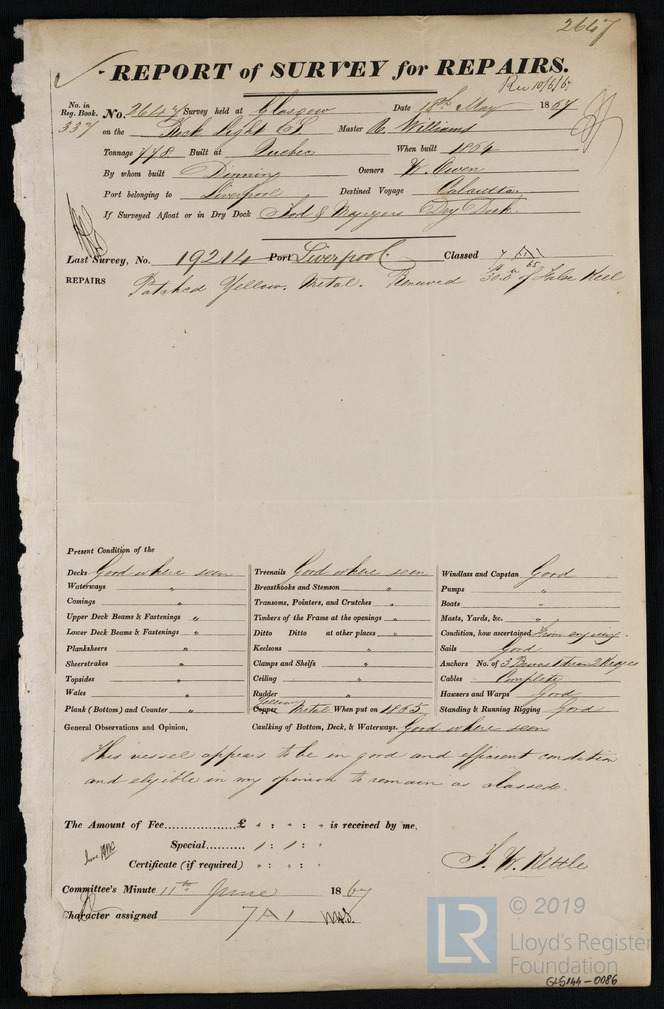 2647
REPORT of SURVEY for REPAIRS.
Rec 10/6/67
No. in Reg. Book. No. 2647 Survey held at Glasgow Date 18th May 1867
337 on the Rock Light Master R. Williams
Tonnage 778 Built at Quebec When built 1854
By whom built Dinning Owners W. Owen
Port belonging to Liverpool Destined Voyage Calcutta
If Surveyed Afloat or in Dry Dock Tod & Macgregors Dry Dock.
Last Survey, No. 19214 Port Liverpool Classed 7 A 1
65
REPAIRS Patched Yellow Metal. Renewed 30.0 of False Keel
Present Condition of the
Decks Good where seen Treenails Good where seen Windlass and Capstan Good
Waterways " Breasthooks and Stemson " Pumps "
Comings " Transoms, Pointers, and Crutches " Boats "
Upper Deck Beams & Fastenings " Timbers of the Frame at the openings " Masts, Yards, &c. "
Lower Deck Beams & Fastenings " Ditto Ditto at other places " Condition, how ascertained From enquiry.
Planksheers " Keelsons " Sails Good
Sheerstrakes " Clamps and Shelfs " Anchors No. of 3 Bowers 1 Stream 2 Kedges
Topsides " Ceiling " Cables Complete
Wales " Rudder " Hawsers and Warps Good
Plank (Bottom) and Counter " Copper Yellow Metal When put on 1865 Standing & Running Rigging Good
General Observations and Opinion, Caulking of Bottom, Deck, & Waterways. Good where seen
This vessel appears to be in good and efficient condition
and eligible in my opinion to remain as classed.
The Amount of Fee.................£ " : " : " is received by me,
Special.......... 1 : 1 : "
Certificate (if required) " : " : "
Committee's Minute 11th June 1867
Character assigned 7 A 1
© 2019
LR
Lloyd's Register
Foundation
GLS144-0086